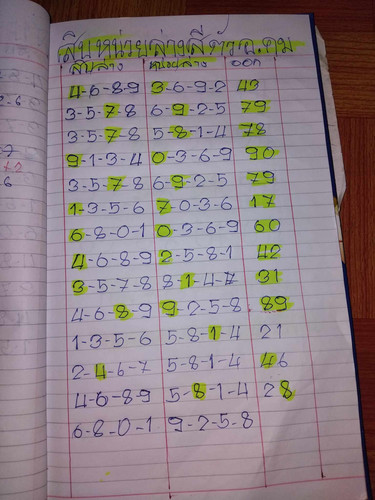 สิบหน่วยล่างสี่ตัวอ.คม
สิบล่าง หน่วยล่าง ออก
4-6-8-9 3-6-9-2 43
3-5-7-8 6-9-2-5 79
3-5-7-8 5-8-1-4 78
9-1-3-4 0-3-6-9 90
3-5-7-8 6-9-2-5 79
1-3-5-6 7-0-3-6 17
6-8-0-1 0-3-6-9 60
4-6-8-9 2-5-8-1 42
3-5-7-8 8-1-4-7 31
4-6-8-9 9-2-5-8 89
1-3-5-6 5-8-1-4 21
2-4-6-7 5-8-1-4 46
4-6-8-9 5-8-1-4 28
6-8-0-1 9-2-5-8